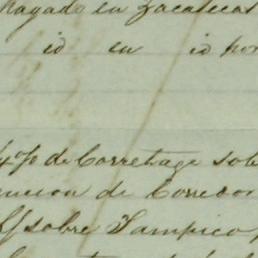 pagado en Zacatecas
id en id por
% de Corretage sob
de Corredor
sobre Tampico